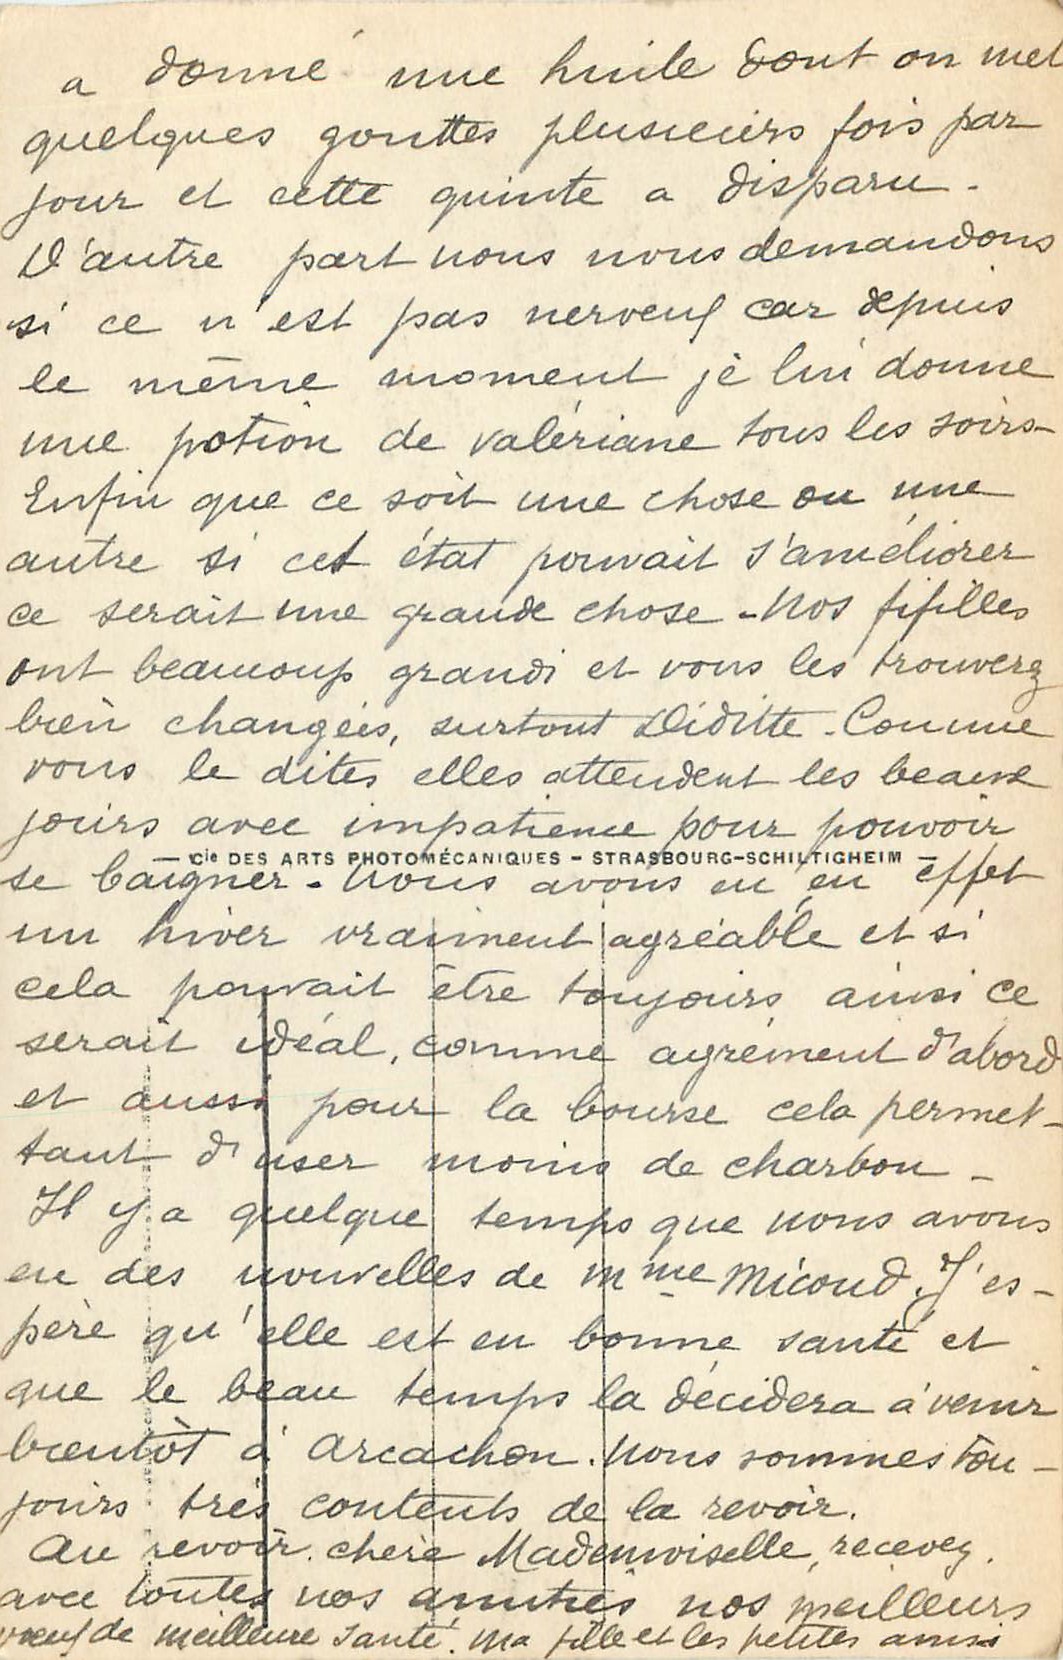 a donné une huile dont on met
quelques gouttes plusieurs fois par
jour et cette quinte a disparu -
D'autre part nous nous demandons
si ce n'est pas nerveux car depuis
le même moment je lui donne
une potion de valériane tous les soirs -
Enfin que ce soit une chose ou une
autre si cet état pouvait s'améliorer
ce serait une grande chose - Nos fifilles
ont beaucoup grandi et vous les trouverez
bien changées, surtout Diditte - Comme
vous le dites elles attendent les beaux
jours avec impatience pour pouvoir
— Cie DES ARTS PHOTOMÉCANIQUES - STRASBOURG-SCHILTIGHEIM —
se baigner - Nous avons eu en effet
un hiver vraiment agréable et si
cela pouvait être toujours ainsi ce
serait idéal, comme agrément d'abord
et aussi pour la bourse cela permet-
tant d'user moins de charbon -
Il y a quelque temps que nous avons
eu des nouvelles de Mme Micoud. J'es-
père qu'elle est en bonne santé et
que le beau temps la décidera à venir
bientôt à Arcachon. Nous sommes tou-
jours très contents de la revoir.
Au revoir chère Mademoiselle, recevez
avec toutes nos amitiés nos meilleurs
vœux de meilleure santé. Ma fille et les petites aussi